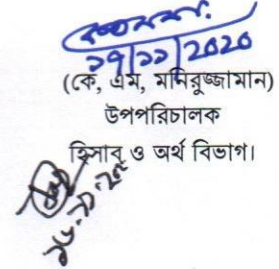 ১৭/১১/2020
(কে, এম, মনিরুজ্জামান)
উপপরিচালক
হিসাব ও অর্থ বিভাগ।